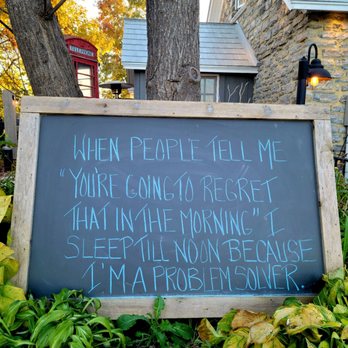 TELEPHONE
WHEN PEOPLE TELL ME
"YOU'RE GOING TO REGRET
THAT IN THE MORNING" I
SLEEP TILL NOON BECAUSE
I'M A PROBLEM SOLVER.